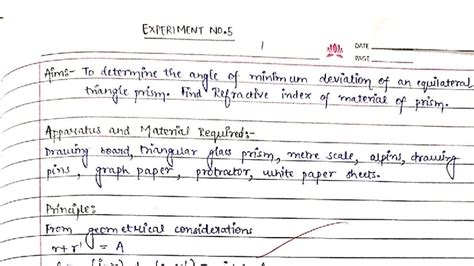 EXPERIMENT NO.5
DATE
PAGE
Aim:- To determine the angle of minimum deviation of an equilateral
triangle prism. Find Refractive index of material of prism.
Apparatus and Material Required:-
Drawing board, triangular glass prism, metre scale, alpins, drawing
pins, graph paper, protractor, white paper sheets.
Principle:
From geometrical considerations
r+r' = A